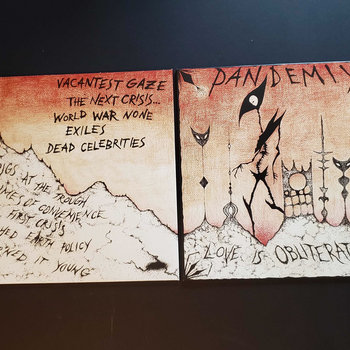 VACANTEST GAZE
THE NEXT CRISIS...
WORLD WAR NONE
EXILES
DEAD CELEBRITIES
AT THE TROUGH
OF CONVENIENCE
FIRST CRISIS
EARTH POLICY
IT YOUNG
PANDEMIX
LOVE IS OBLITERAT